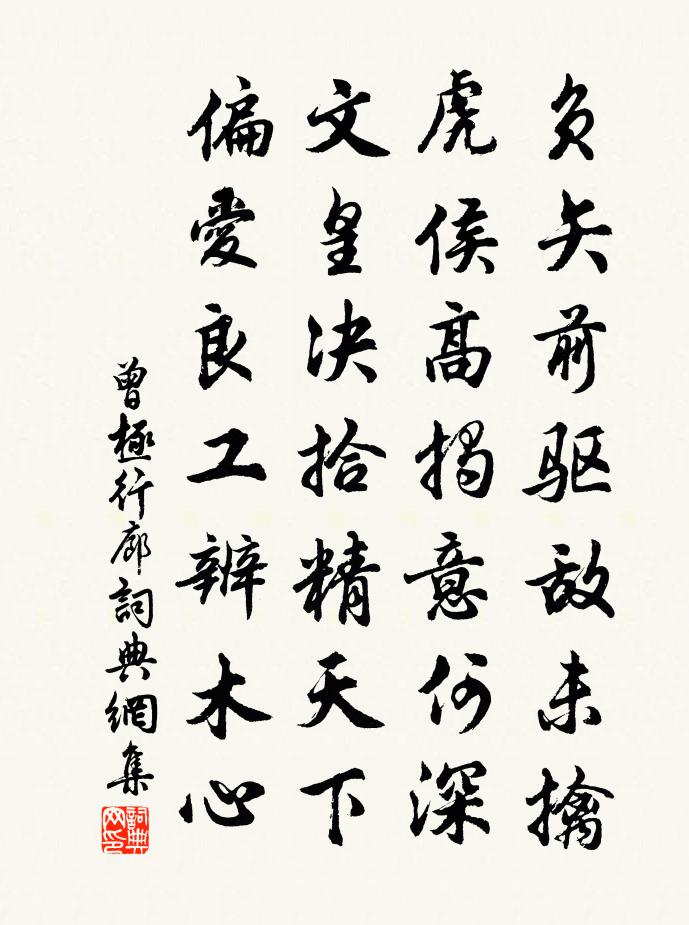 负矢前驱敌未擒
虎侯高揭意何深
文皇决拾精天下
偏爱良工辨木心
曾極行廊詞典網集
詞典网印